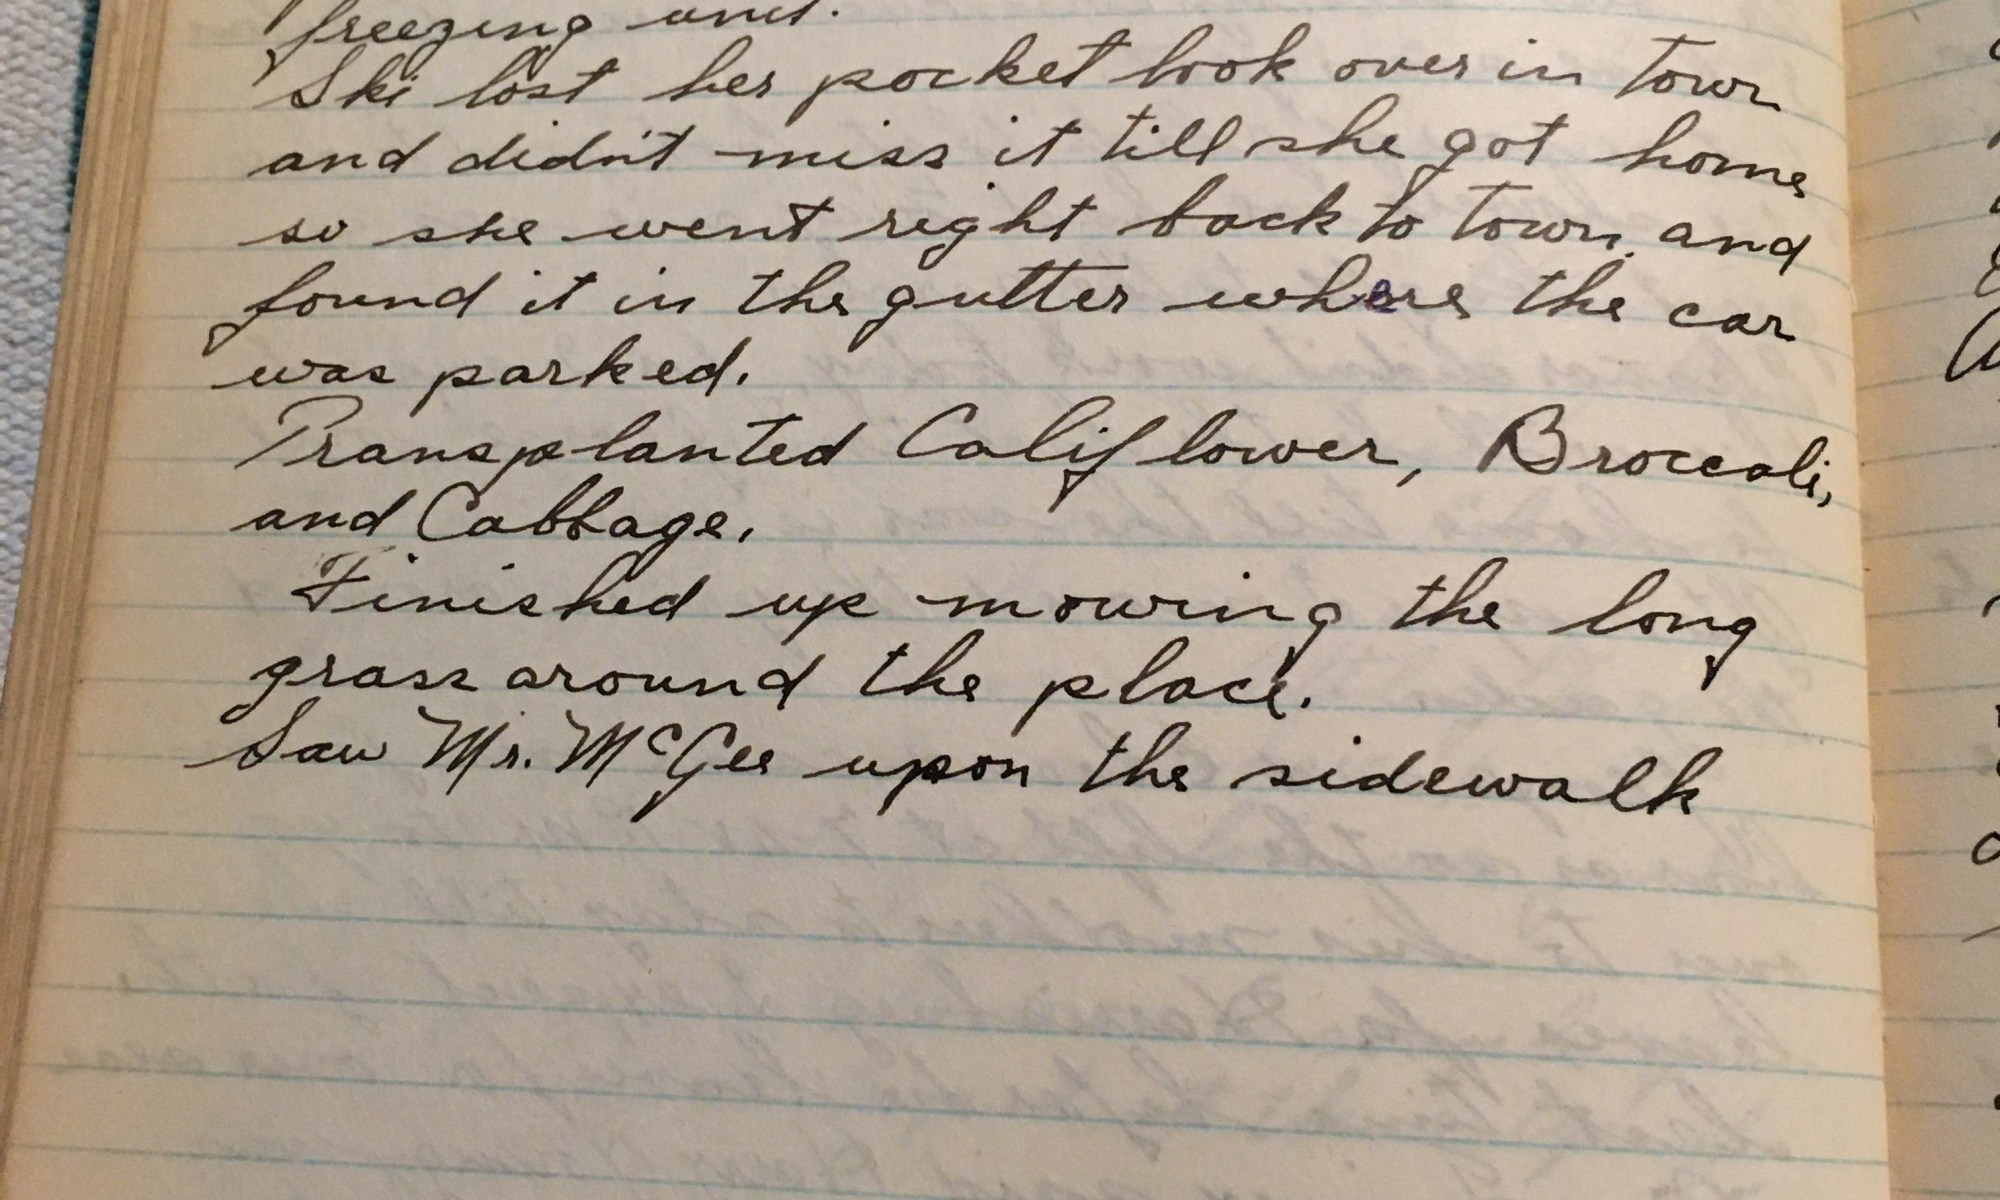 freezing unit.
Ski lost her pocket book over in town
and didn't miss it till she got home
so she went right back to town and
found it in the gutter where the car
was parked.
Transplanted Califlower, Broccoli,
and Cabbage.
Finished up mowing the long
grass around the place.
Saw Mr. McGee upon the sidewalk